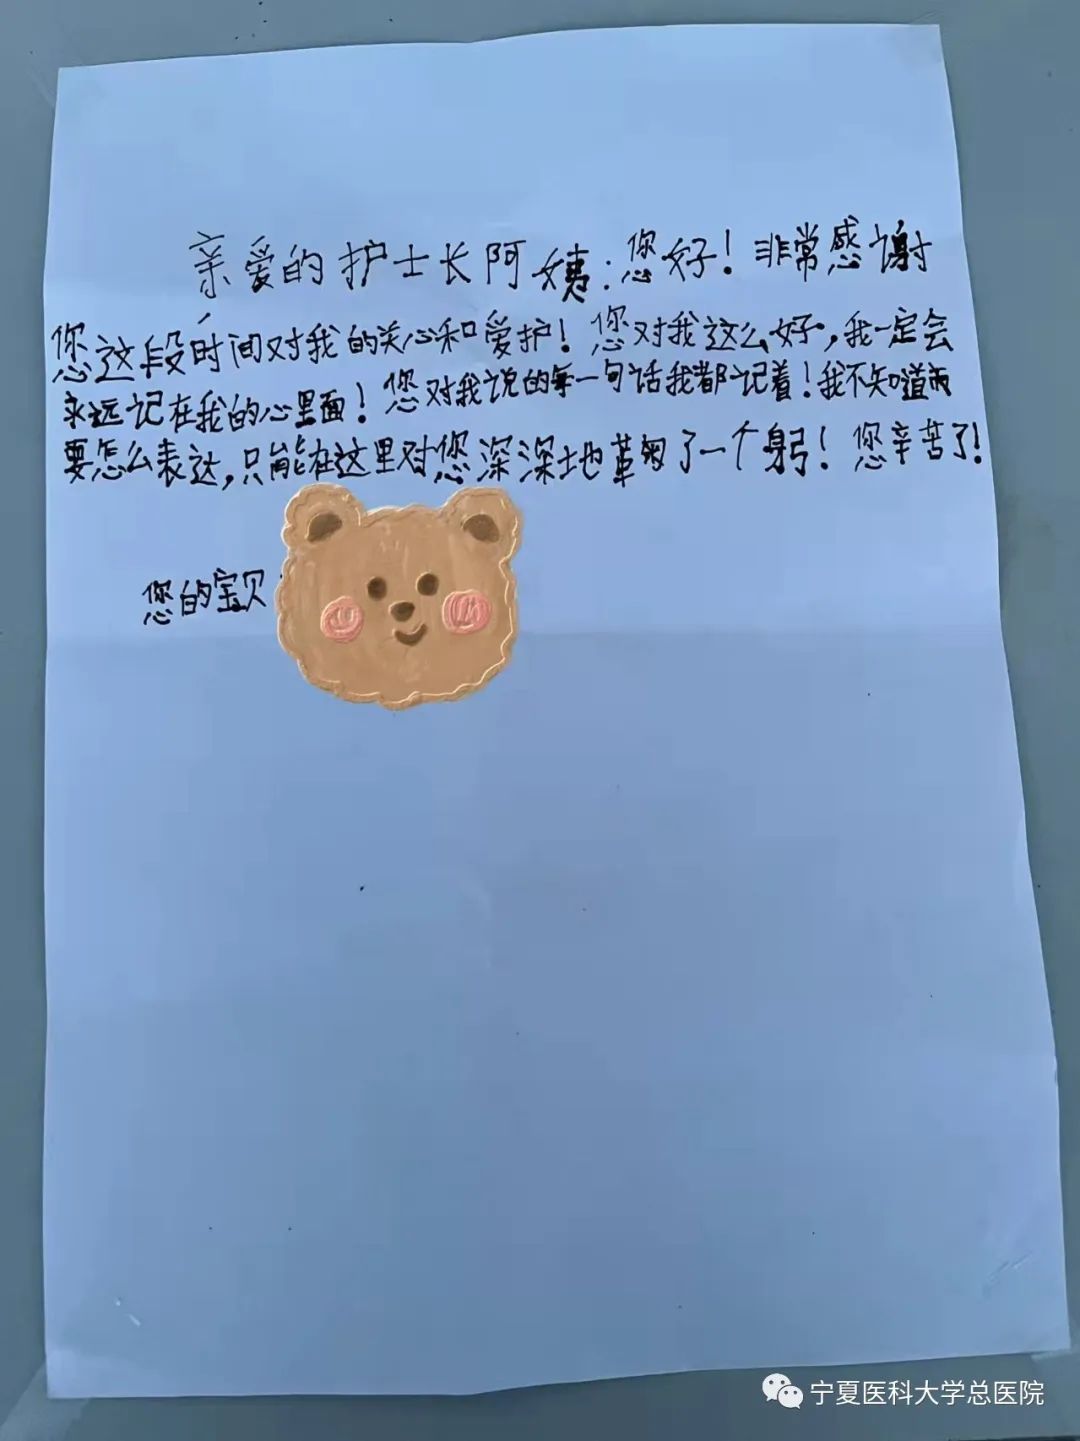 亲爱的护士长阿姨:您好!非常感谢
您这段时间对我的关心和爱护!您对我这么好,我一定会
永远记在我的心里面!您对我说的每一句话我都记着!我不知道
要怎么表达,只能在这里对您深深地鞠了一个躬!您辛苦了!
您的宝贝
宁夏医科大学总医院